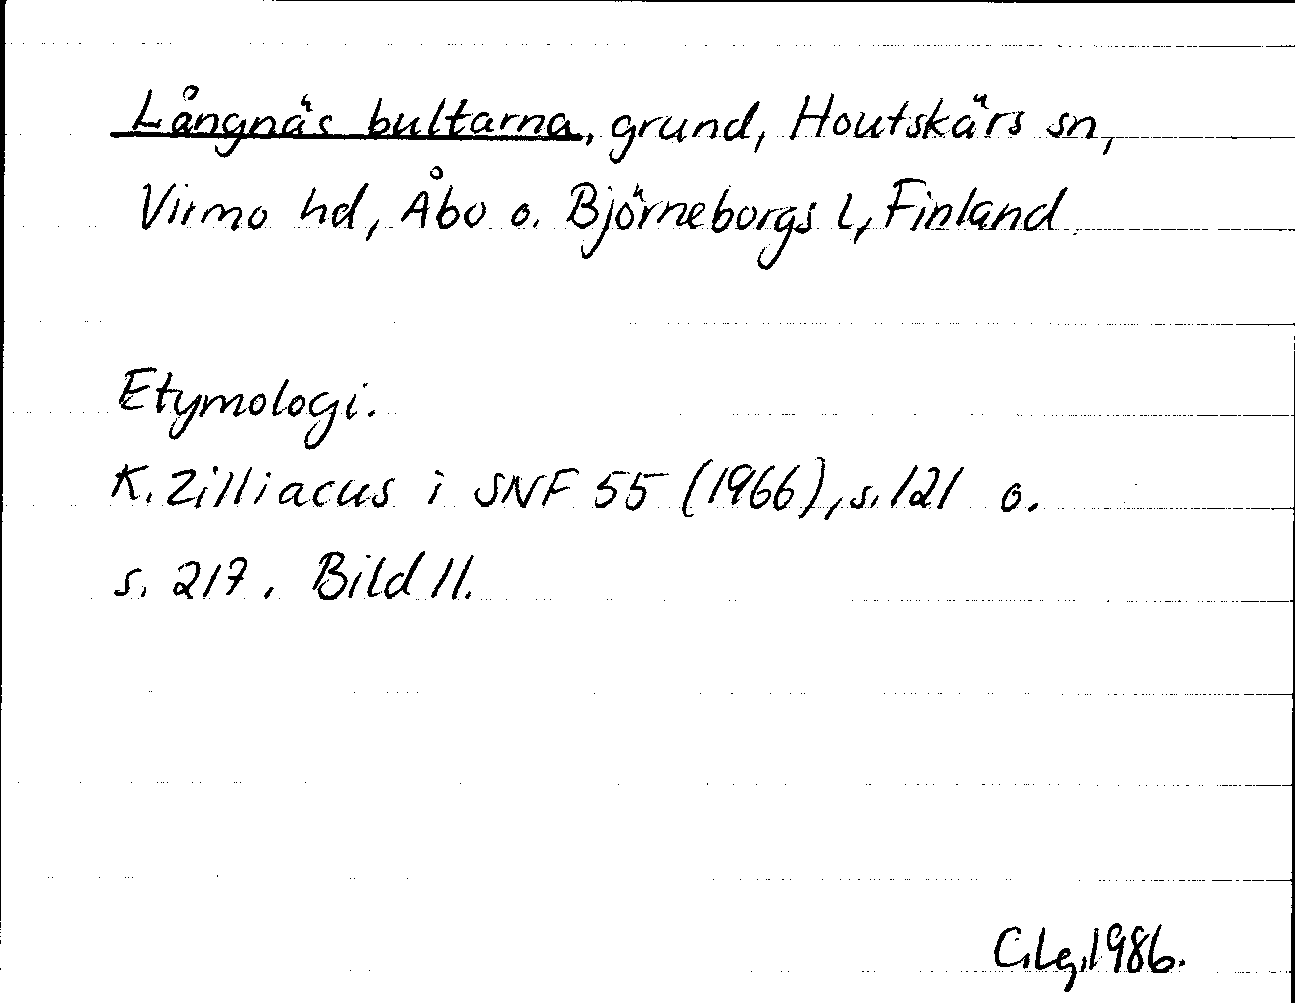 Långnäs bultarna, grund, Houtskärs sn,
Virmo hd, Åbo o. Björneborgs l, Finland
Etymologi.
K. Zilliacus i SNF 55 (1966), s. 121 o.
s. 217. Bild 11.
C.Lg. 1986.